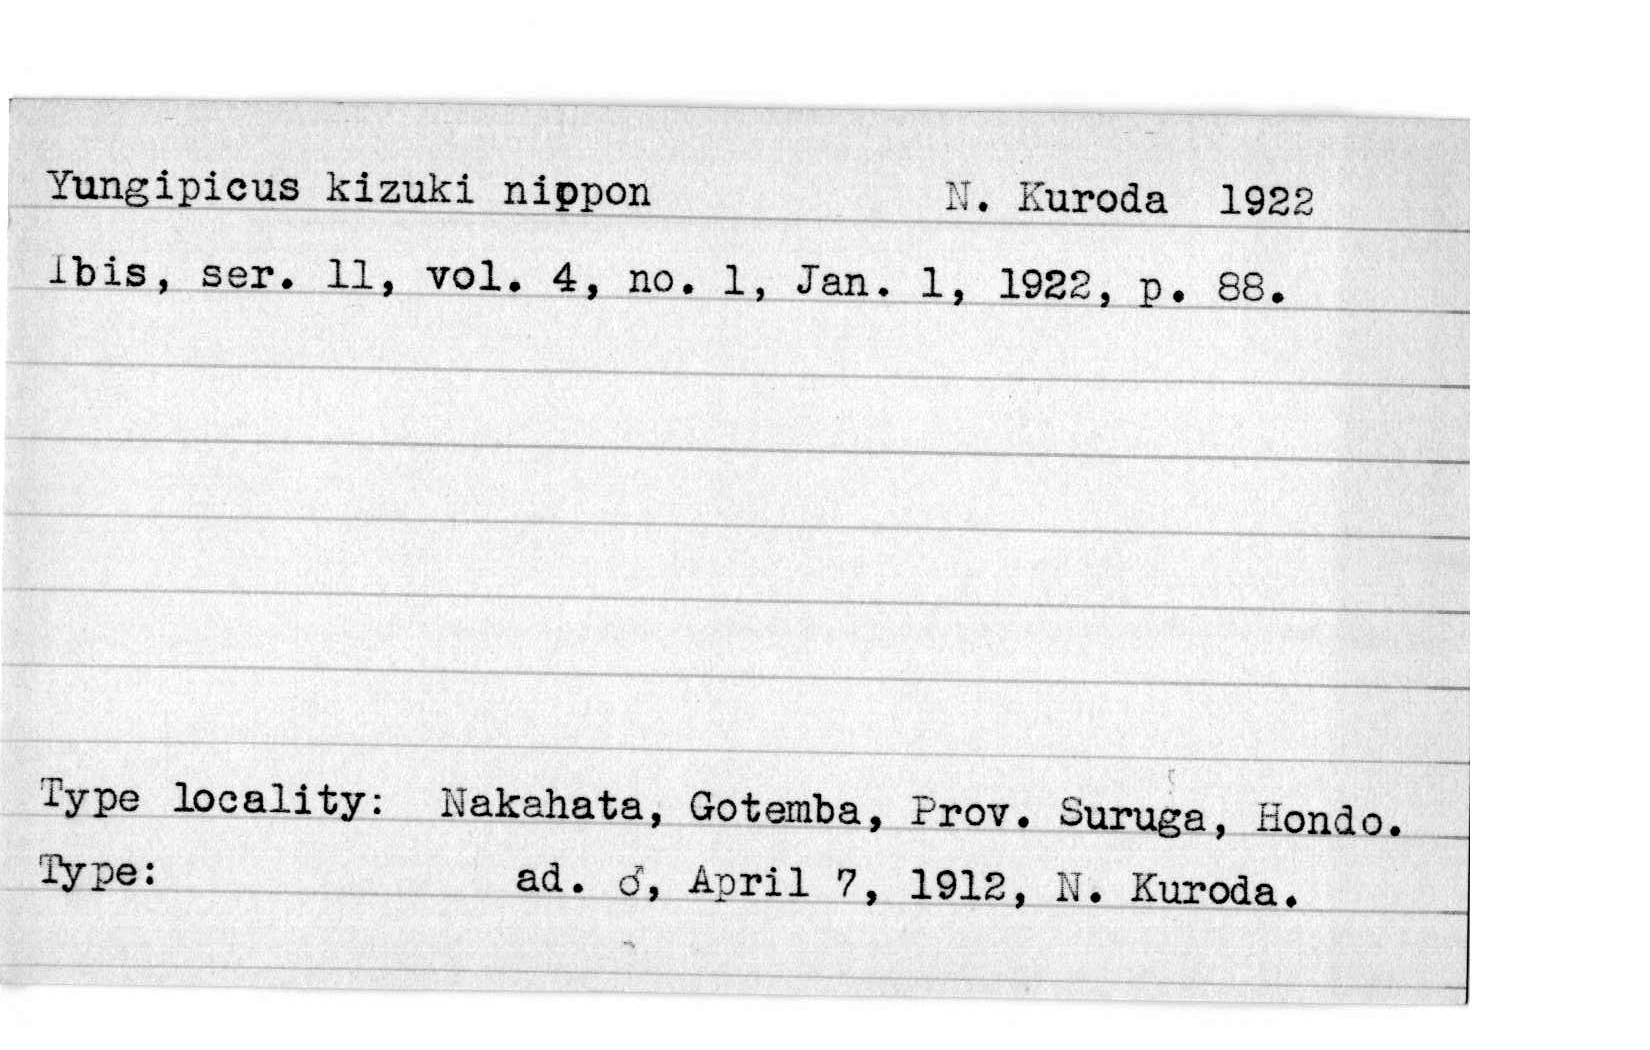 Yungipicus kizuki nippon N. Kuroda 1922
Ibis, ser. 11, vol. 4, no. 1, Jan. 1, 1922, p. 88.
Type locality: Nakahata, Gotemba, Prov. Suruga, Hondo.
Type: ad. ♂, April 7, 1912, N. Kuroda.